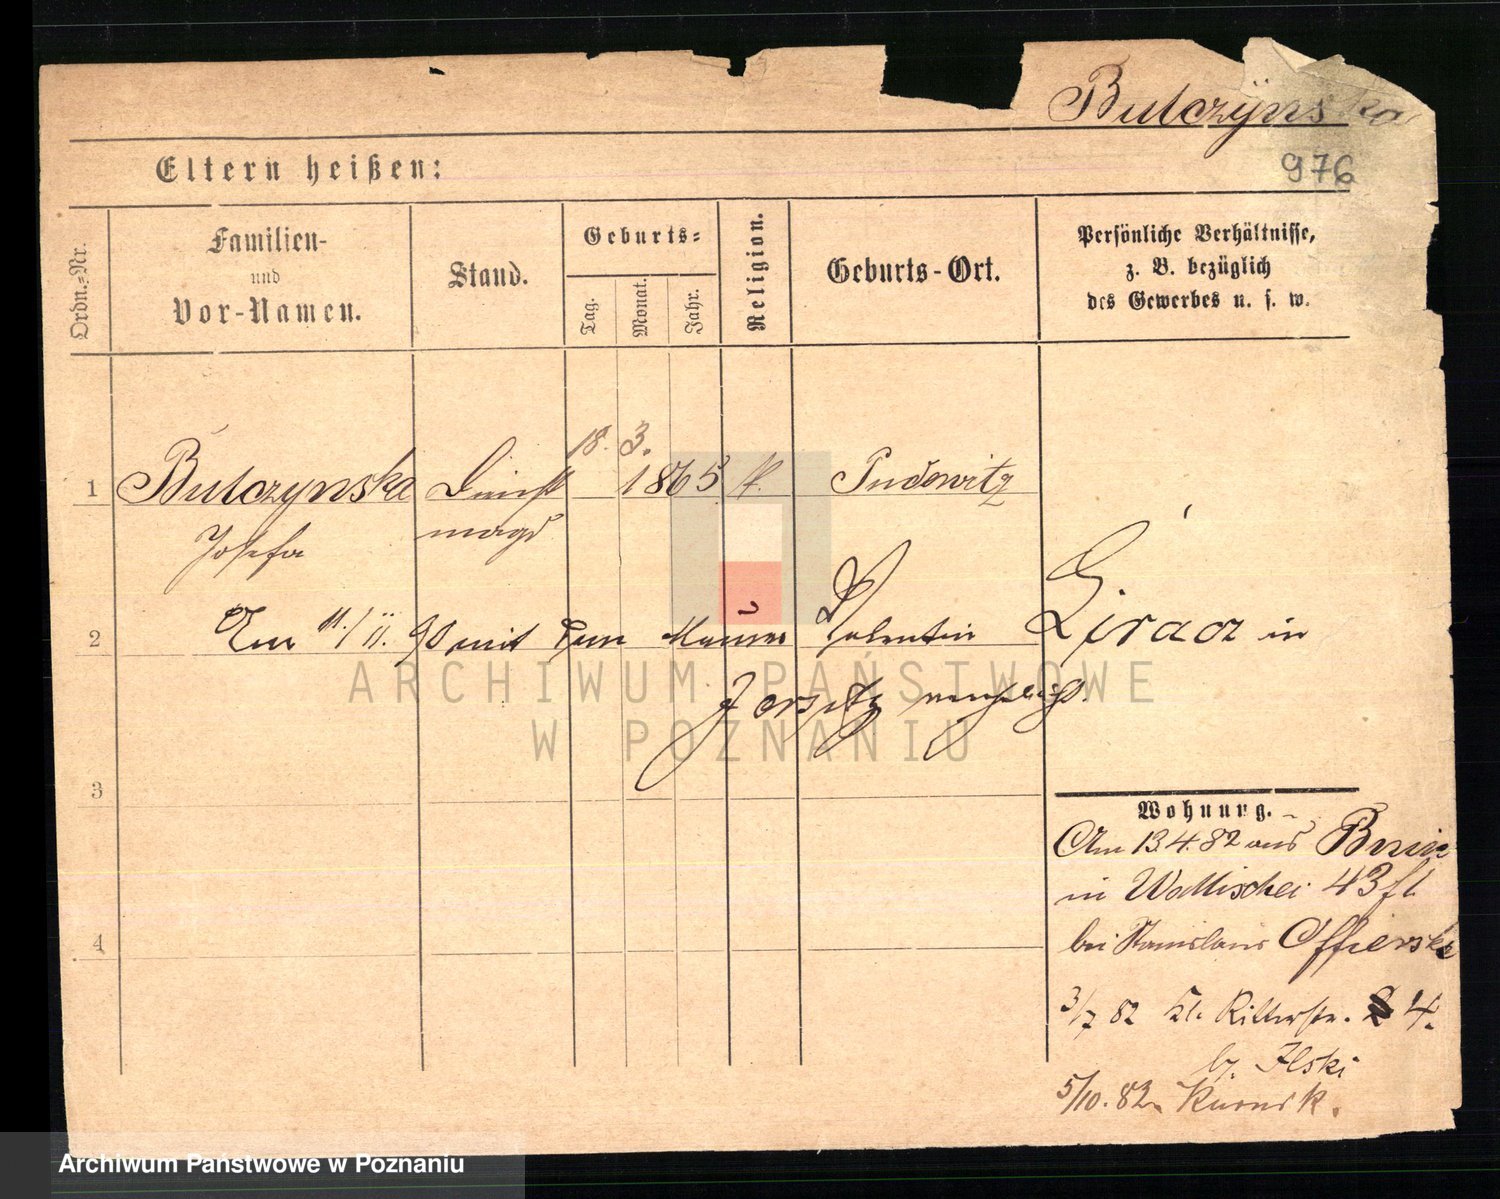 Butczÿnska
976
Eltern heißen:
Ordn.=Nr.
Familien-
und
Vor-Namen.
Stand.
Geburts=
Tag.
Monat.
Jahr.
Religion.
Geburts-Ort.
Persönliche Verhältnisse,
z. B. bezüglich
des Gewerbes u. s. w.
18. 3.
1 Butczynska Dienst 1865 k. Pudewitz
Josefa magd
2 Am 11./11. 90 mit dem Maurer Valentin Giracz in
Jersitz verehelicht.
3
Wohnung.
Am 13.4.82 aus Bnin
in Wallischei 43 fl
bei Stanislaus Offierski
4
3/7 82 Kl. Ritterstr. 4.
b. Ilski
5/10. 82. Kurnik.
ARCHIWUM PAŃSTWOWE
W POZNANIU
Archiwum Państwowe w Poznaniu